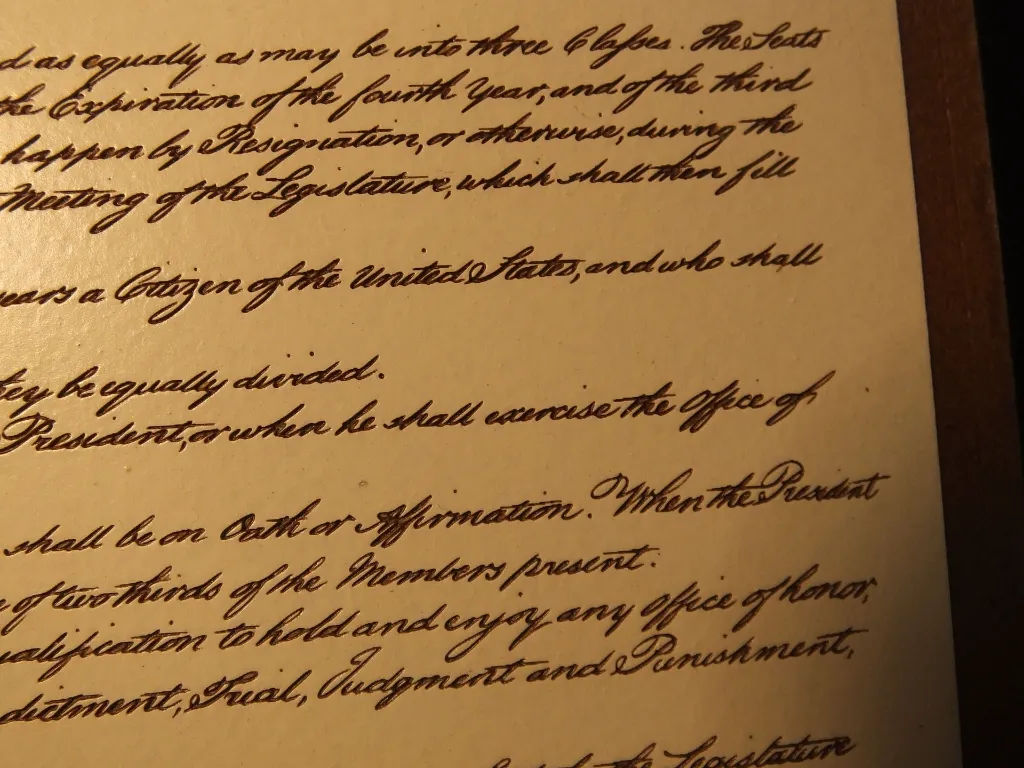 d as equally as may be into three Classes. The Seats
the Expiration of the fourth Year, and of the third
happen by Resignation, or otherwise, during the
Meeting of the Legislature, which shall then fill
ears a Citizen of the United States, and who shall
ey be equally divided.
President, or when he shall exercise the Office of
shall be on Oath or Affirmation. When the President
e of two thirds of the Members present.
ualification to hold and enjoy any Office of honor,
dictment, Trial, Judgment and Punishment,
the Legislature